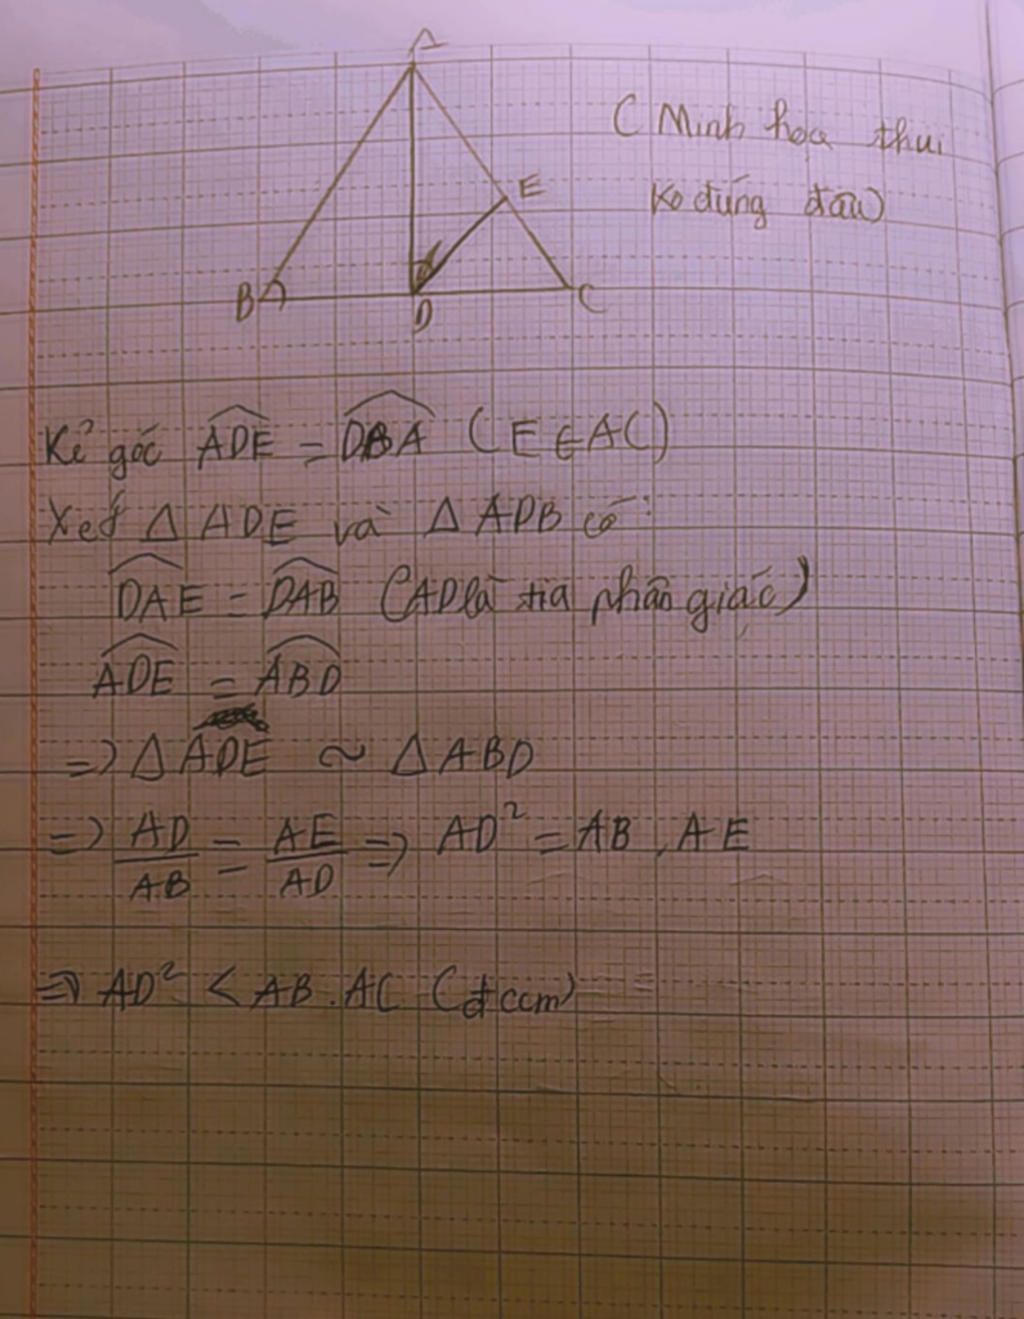 A
( Minh họa thui
E
ko đúng đâu)
B
C
D
Kẻ góc ADE = DBA (E ∈ AC)
Xét △ ADE và △ ADB có:
DAE = DAB (AD là tia phân giác)
ADE = ABD
=> △ ADE ~ △ ABD
=> AD/AB = AE/AD => AD² = AB . AE
=> AD² < AB . AC (đccm)